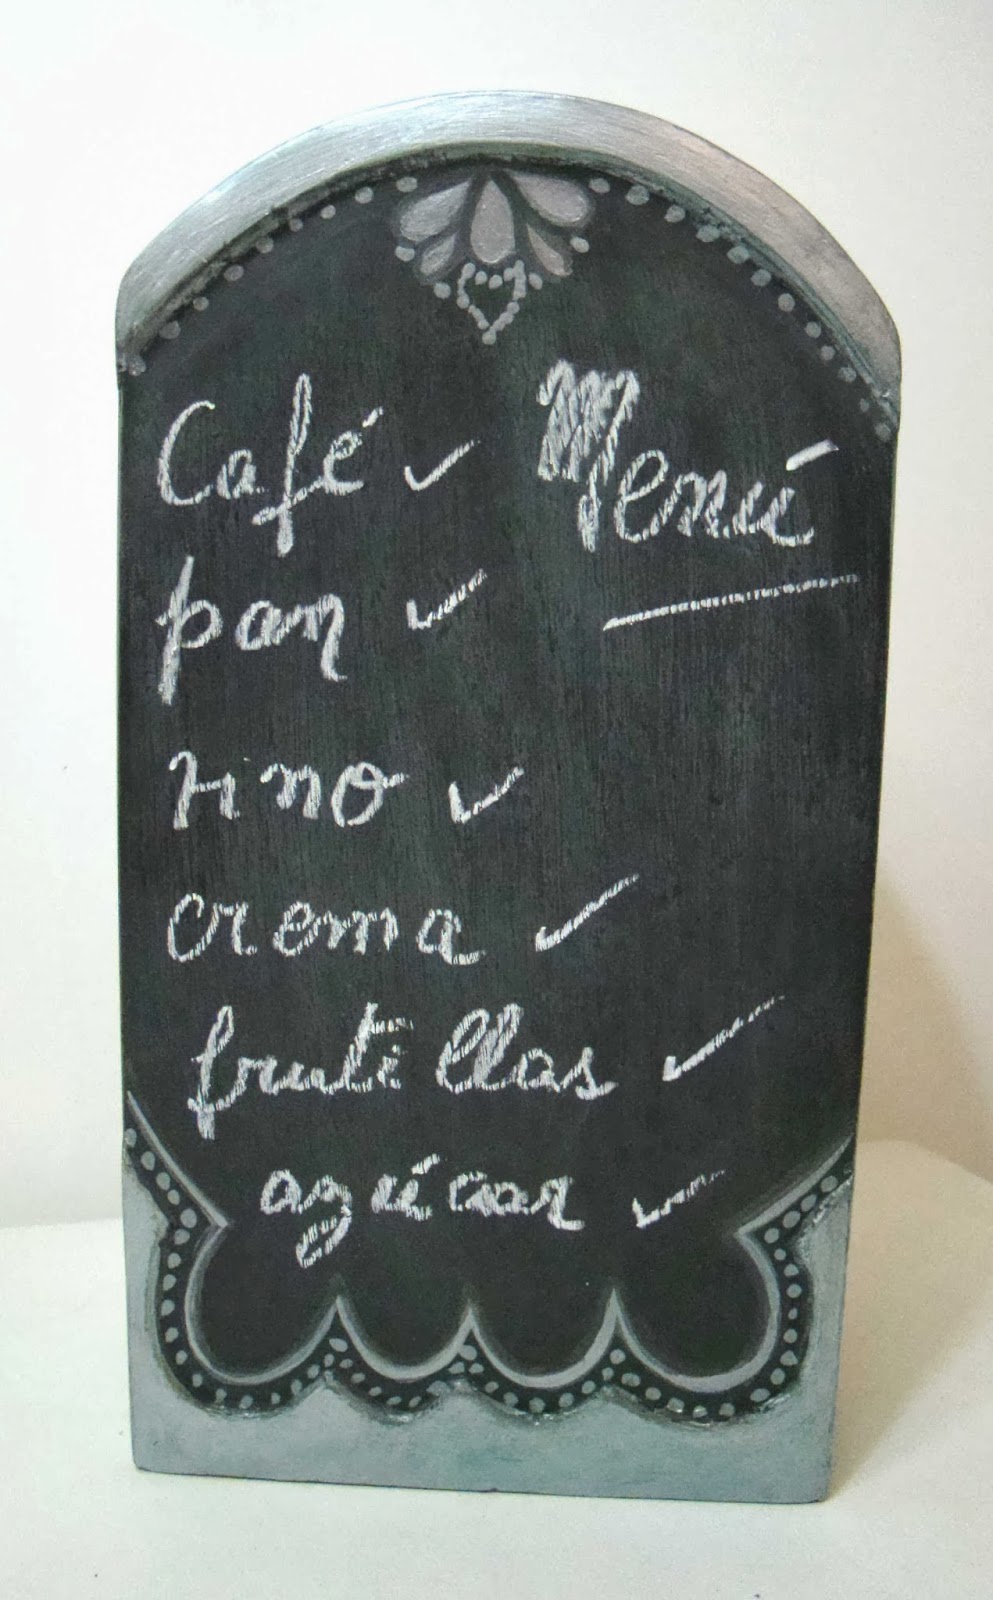 Café ✓ Menú
pan ✓
vino ✓
crema ✓
frutillas ✓
azúcar ✓